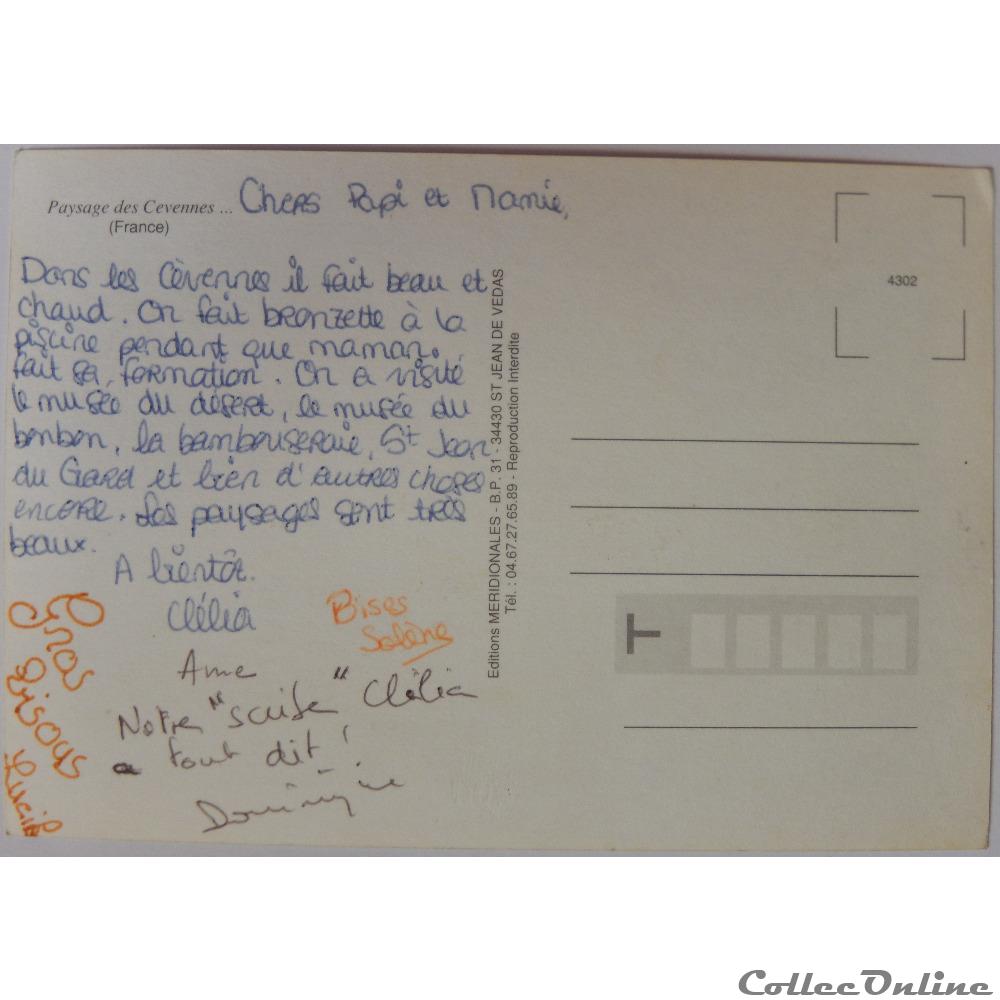 Paysage des Cevennes ...
(France)
Chers Papi et Mamie,
Dans les Cévennes il fait beau et
chaud. On fait bronzette à la
piscine pendant que maman
fait sa formation. On a visité
le musée du désert, le musée du
bonbon, la bambouseraie, St Jean
du Gard et bien d'autres choses
encore. Les paysages sont très
beaux.
A bientôt.
Clélia
Bises
Solène
Gros
bisous
Lucile
Anne
Notre "scribe" Clélia
a tout dit !
Dominique
Editions MERIDIONALES - B.P. 31 - 34430 ST JEAN DE VEDAS
Tél. : 04.67.27.65.89 - Reproduction Interdite
4302
T
CollecOnline